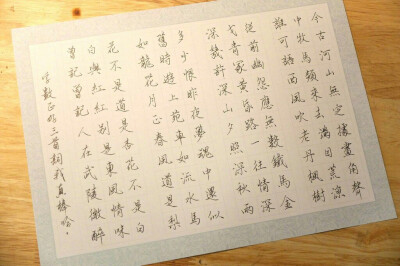 今古河山無定據畫角聲
中牧馬頻來去滿目荒涼
誰可語西風吹老丹楓樹
從前幽怨應無數鐵馬金
戈青冢黃昏路一往情深
深幾許深山夕照深秋雨
多少恨昨夜夢魂中還似
舊時遊上苑車如流水馬
如龍花月正春風道是梨
花不是道是杏花不是白
白與紅紅別是東風情味
曾記曾記人在武陵微醉
字數正好三首詞我真棒哈。